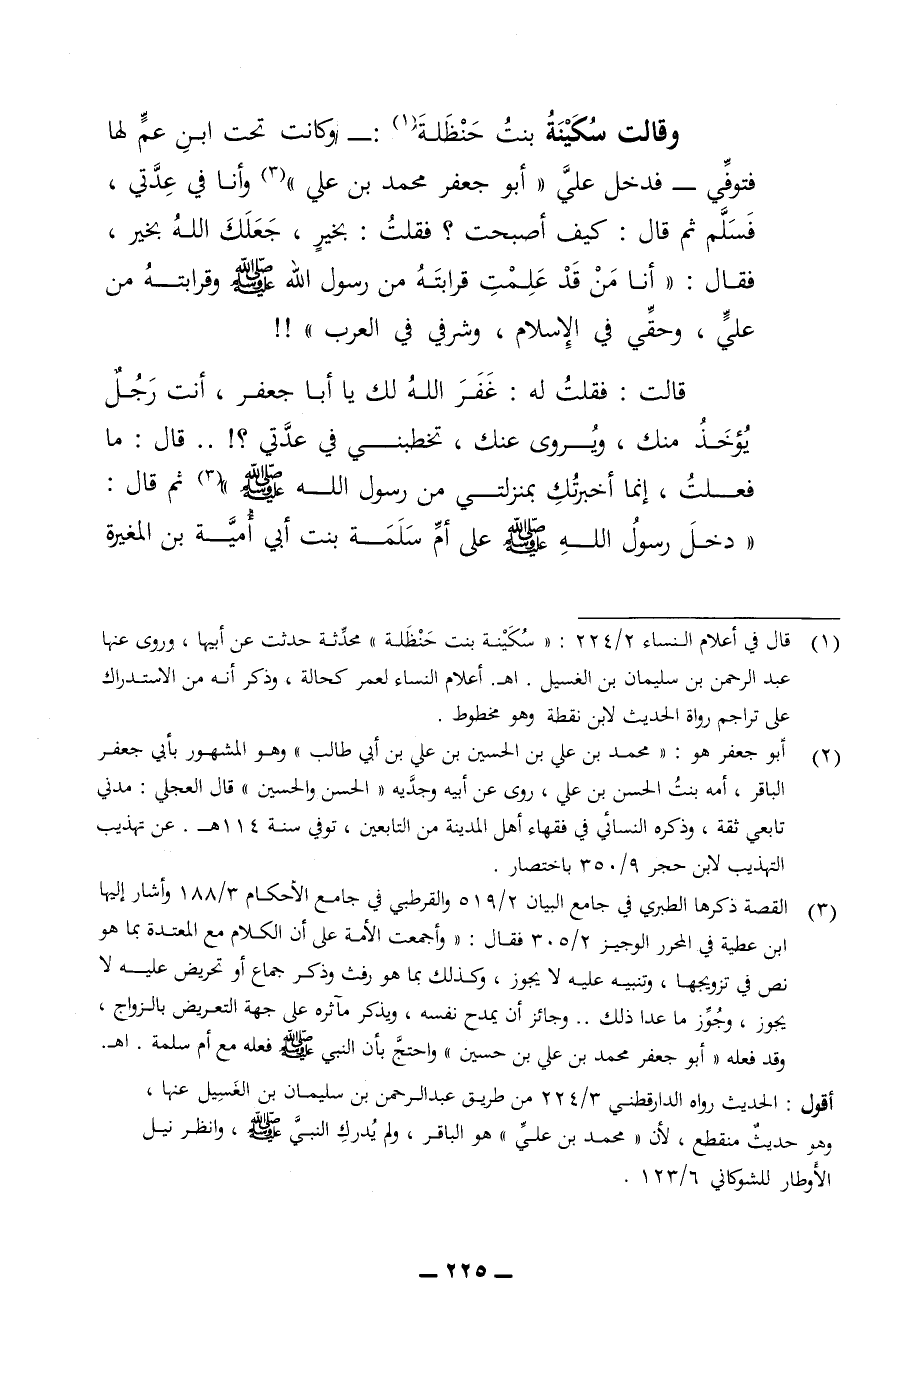 وقالت سُكَيْنَةُ بنتُ حَنْظَلَةَ(١) :ـ وكانت تحت ابنِ عمٍّ لها
فتوفِّي ـ فدخل عليَّ « أبو جعفر محمد بن علي »(٣) وأنا في عِدَّتي ،
فَسَلَّم ثم قال : كيف أصبحت ؟ فقلتُ : بخيرٍ ، جَعَلَكَ اللهُ بخير ،
فقال : « أنا مَنْ قَدْ عَلِمْتِ قرابتَهُ من رسول الله ﷺ وقرابتهُ من
عليٍّ ، وحقِّي في الإِسلام ، وشرفي في العرب » !!
قالت : فقلتُ له : غَفَرَ اللهُ لك يا أبا جعفر ، أنت رَجُلٌ
يُؤخَذُ منك ، ويُروى عنك ، تخطبني في عدَّتي ؟! .. قال : ما
فعلتُ ، إنما أخبرتُكِ بمنزلتي من رسول الله ﷺ »(٣) ثم قال :
« دخلَ رسولُ اللهِ ﷺ على أمِّ سَلَمَة بنت أبي أُميَّة بن المغيرة
(١) قال في أعلام النساء ٢٢٤/٢ : « سُكَيْنة بنت حَنْظَلة » محدِّثة حدثت عن أبيها ، وروى عنها
عبد الرحمن بن سليمان بن الغسيل . اهـ. أعلام النساء لعمر كحالة ، وذكر أنه من الاستدراك
على تراجم رواة الحديث لابن نقطة وهو مخطوط .
(٢) أبو جعفر هو : « محمد بن علي بن الحسين بن علي بن أبي طالب » وهو المشهور بأبي جعفر
الباقر ، أمه بنتُ الحسن بن علي ، روى عن أبيه وجدَّيه « الحسن والحسين » قال العجلي : مدني
تابعي ثقة ، وذكره النسائي في فقهاء أهل المدينة من التابعين ، توفي سنة ١١٤هـ . عن تهذيب
التهذيب لابن حجر ٣٥٠/٩ باختصار .
(٣) القصة ذكرها الطبري في جامع البيان ٥١٩/٢ والقرطبي في جامع الأحكام ١٨٨/٣ وأشار إليها
ابن عطية في المحرر الوجيز ٣٠٥/٢ فقال : « وأجمعت الأمة على أن الكلام مع المعتدة بما هو
نص في تزويجها ، وتنبيه عليه لا يجوز ، وكذلك بما هو رفث وذكر جماع أو تحريض عليه لا
يجوز ، وجُوِّز ما عدا ذلك .. وجائز أن يمدح نفسه ، ويذكر مآثره على جهة التعريض بالزواج ،
وقد فعله « أبو جعفر محمد بن علي بن حسين » واحتجَّ بأن النبي ﷺ فعله مع أم سلمة . اهـ.
أقول : الحديث رواه الدارقطني ٢٢٤/٣ من طريق عبدالرحمن بن سليمان بن الغَسِيل عنها ،
وهو حديثٌ منقطع ، لأن « محمد بن عليٍّ » هو الباقر ، ولم يُدركِ النبيَّ ﷺ ، وانظر نيل
الأوطار للشوكاني ١٢٣/٦ .
ـ ٢٢٥ ـ